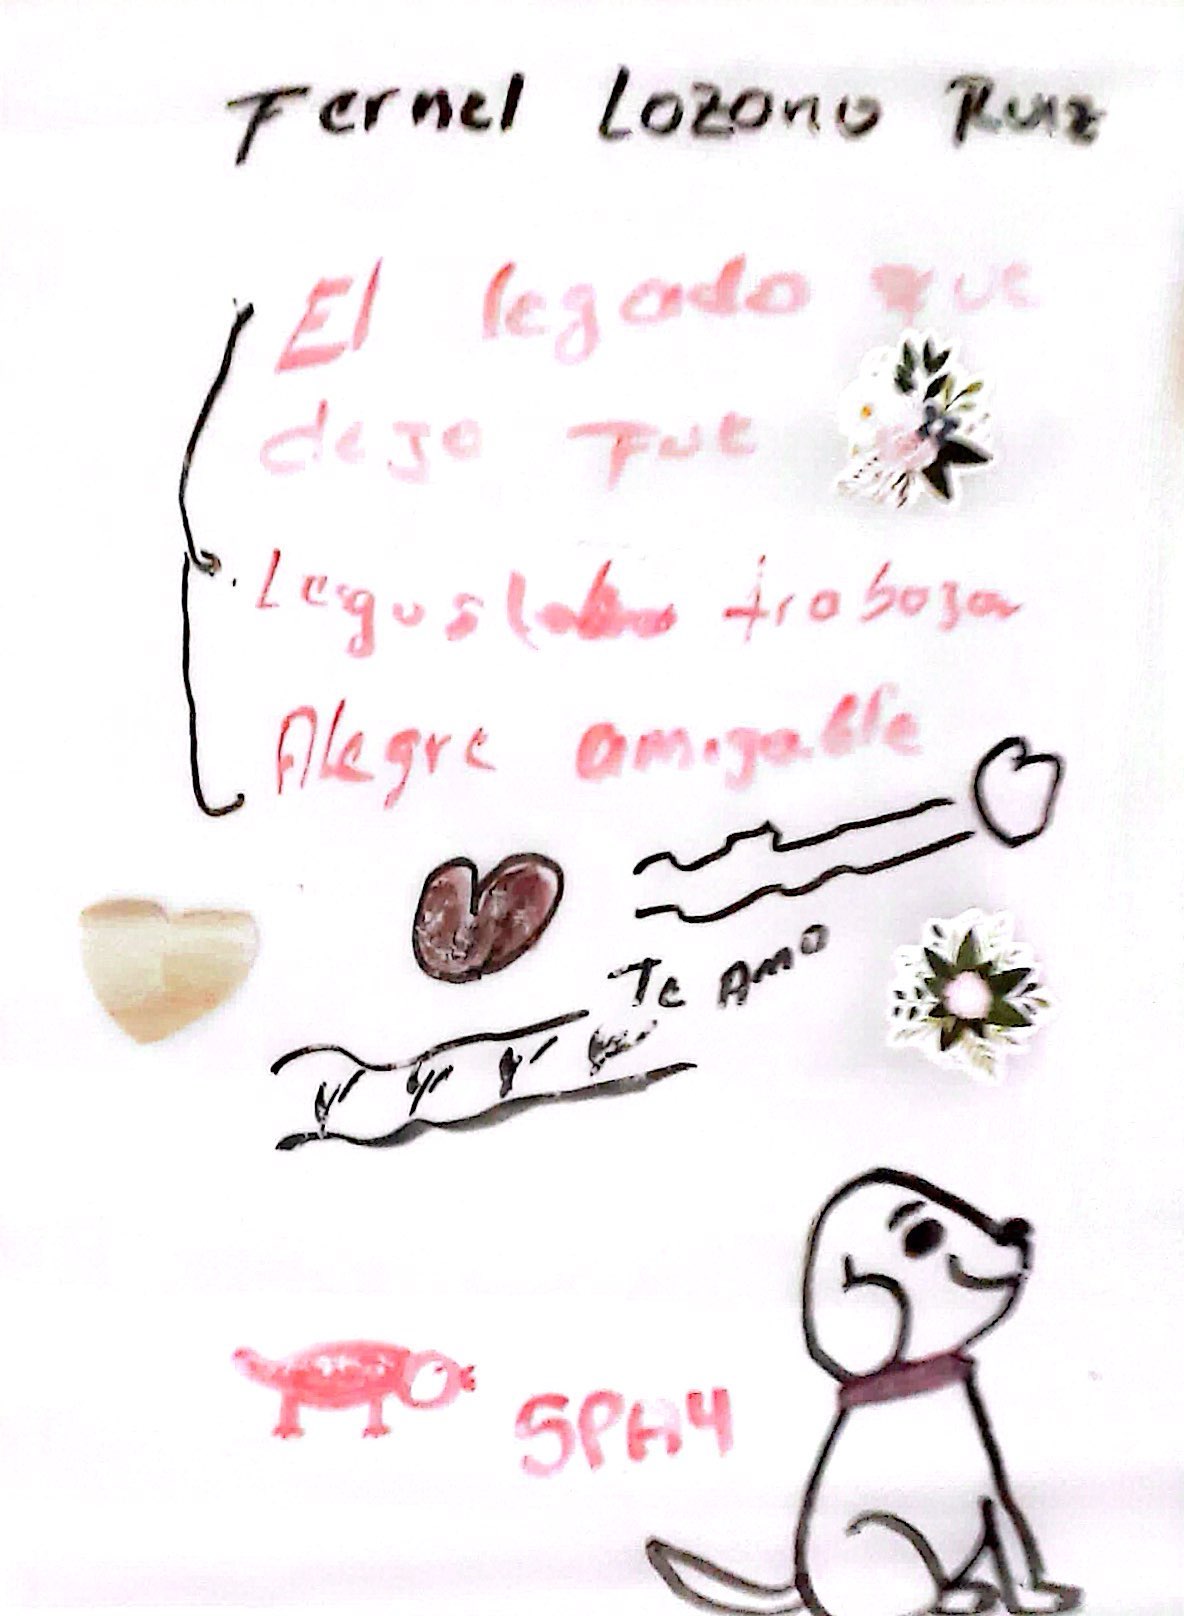 Fernel Lozono Ruiz
El legado que
dejo Fue
Legustaba trabajar
Alegre amigable
Te Amo
SPHY